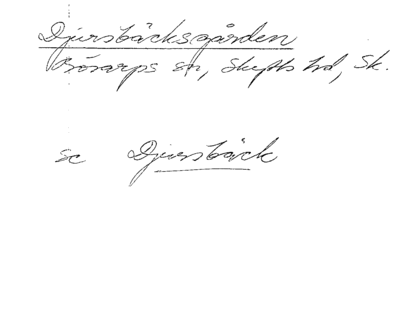 Djursbäcksgården
Börarps sn, Skytts hd, Sk.
se Djursbäck